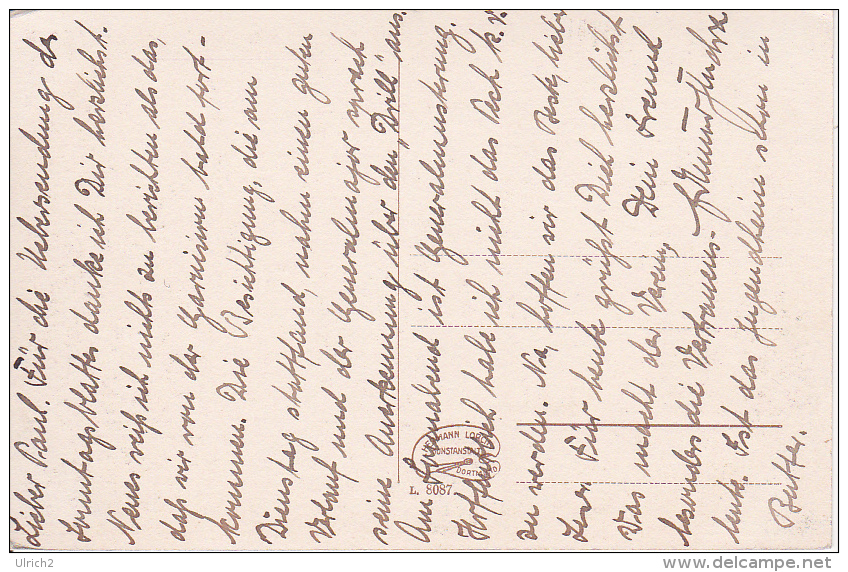 Lieber Paul. Für die Uebersendung des
Sonntagsblattes danke ich Dir herzlichst.
Neues weiß ich nichts zu berichten als das,
daß wir von der Garnison bald fort-
kommen. Die Besichtigung, die am
Dienstag stattfand, nahm einen guten
Verlauf und der Generalmajor sprach
seine Anerkennung über den "Drill" aus.
Am Sonnabend ist Generalmusterung.
Hoffentlich habe ich nicht das Pech k.v.
zu werden. Na, hoffen wir das Beste, lieber
Leser. Für heute grüßt Dich herzlichst
Dein Freund
Was macht der Verein,
besonders die Vertrauens-
leute. Ist das Jugendheim schon in
Butter.
HERMANN LORCH
KUNSTANSTALT
DORTMUND
L. 8087.
Ulrich2
http://www.delcampe.net